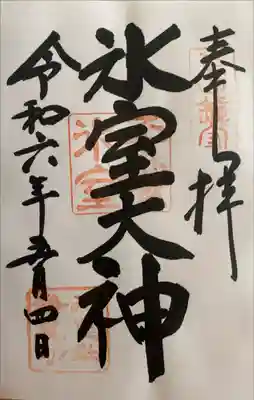 奉拝
氷室大神
令和六年五月四日